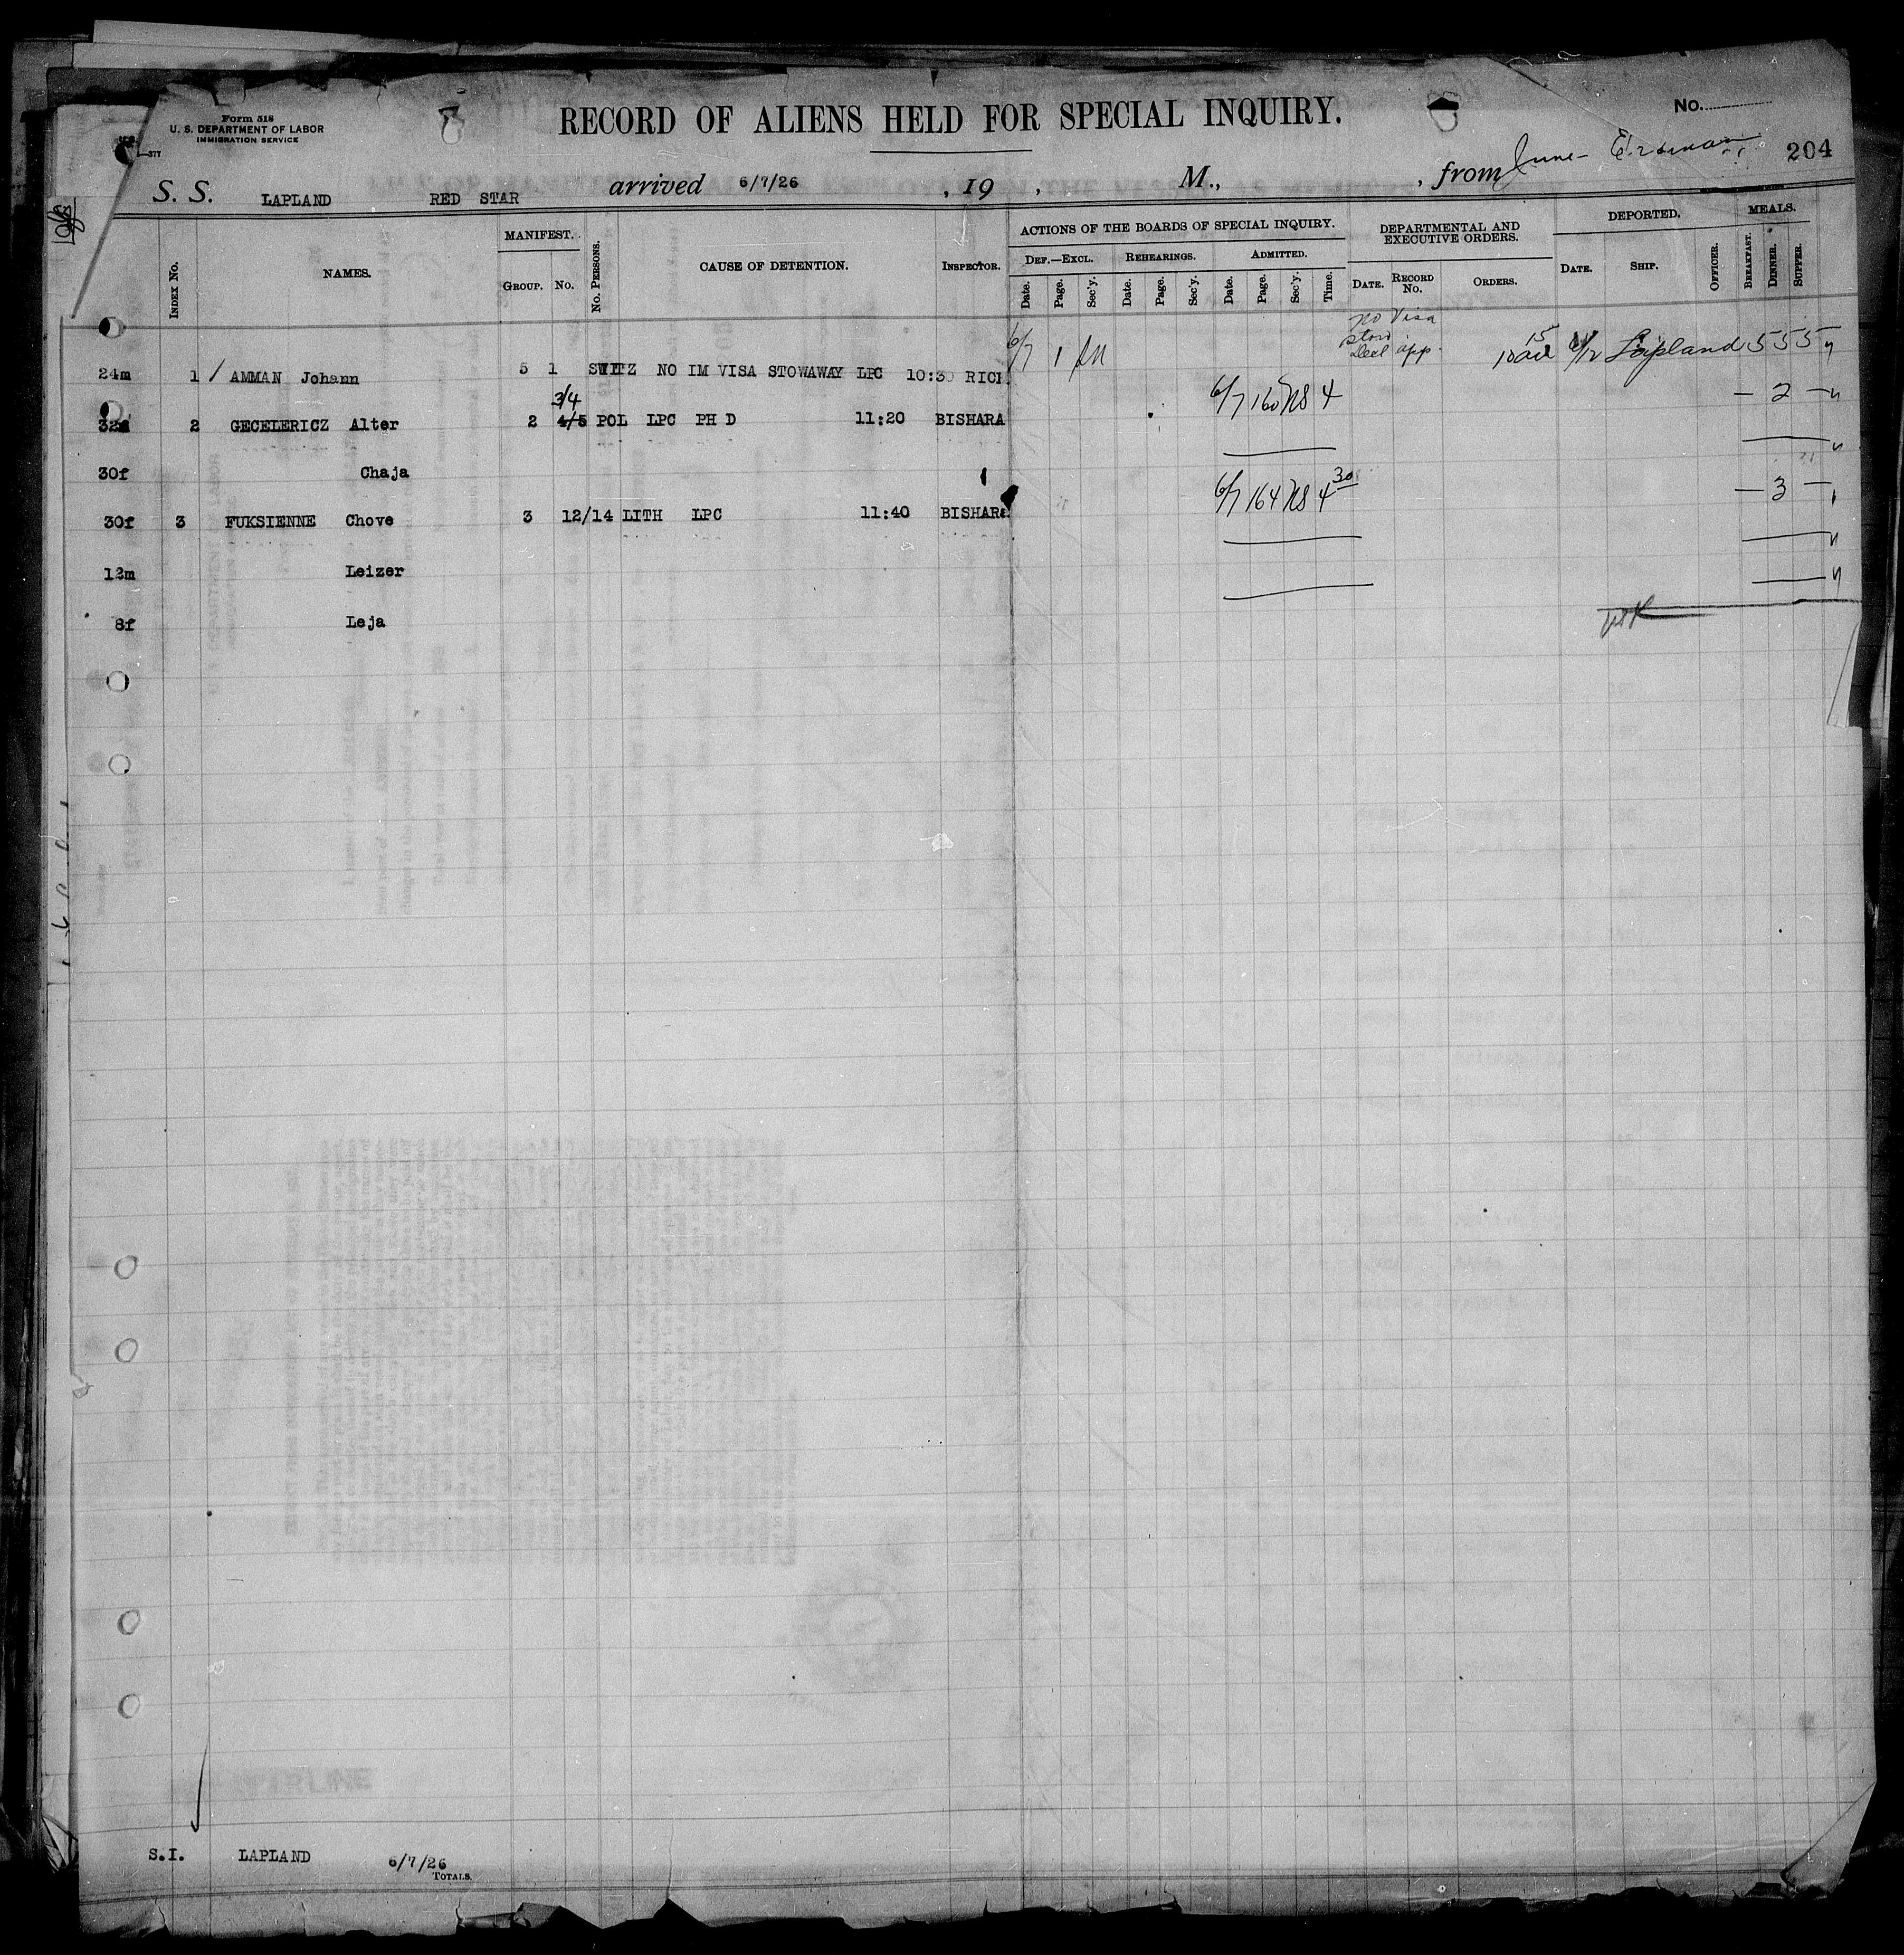 Form 518
U. S. DEPARTMENT OF LABOR
IMMIGRATION SERVICE
RECORD OF ALIENS HELD FOR SPECIAL INQUIRY.
No.
204
S. S. LAPLAND RED STAR arrived 6/7/26 , 19 , M., , from June
ACTIONS OF THE BOARDS OF SPECIAL INQUIRY.
DEPARTMENTAL AND EXECUTIVE ORDERS.
DEPORTED.
MEALS.
MANIFEST.
DEF.—EXCL. REHEARINGS. ADMITTED.
INDEX NO. NAMES. GROUP. NO. NO. PERSONS. CAUSE OF DETENTION. INSPECTOR. Date. Page. Sec'y. Date. Page. Sec'y. Date. Page. Sec'y. Time. DATE. RECORD NO. ORDERS. DATE. SHIP. OFFICER. BREAKFAST. DINNER. SUPPER.
no Visa
stow
24m 1 / AMMAN Johann 5 1 SWITZ NO IM VISA STOWAWAY LPC 10:30 RICH 6/7 1 15 Lapland 5 5 5
3/4
32m 2 GECELERICZ Alter 2 4/5 POL LPC PH D 11:20 BISHARA 6/7 160 NS 4 — 2 —
30f Chaja
30f 3 FUKSIENNE Chove 3 12/14 LITH LPC 11:40 BISHARA 6/7 164 NS 4 30 — 3 —
12m Leizer
8f Leja
S.I. LAPLAND 6/7/26
TOTALS.